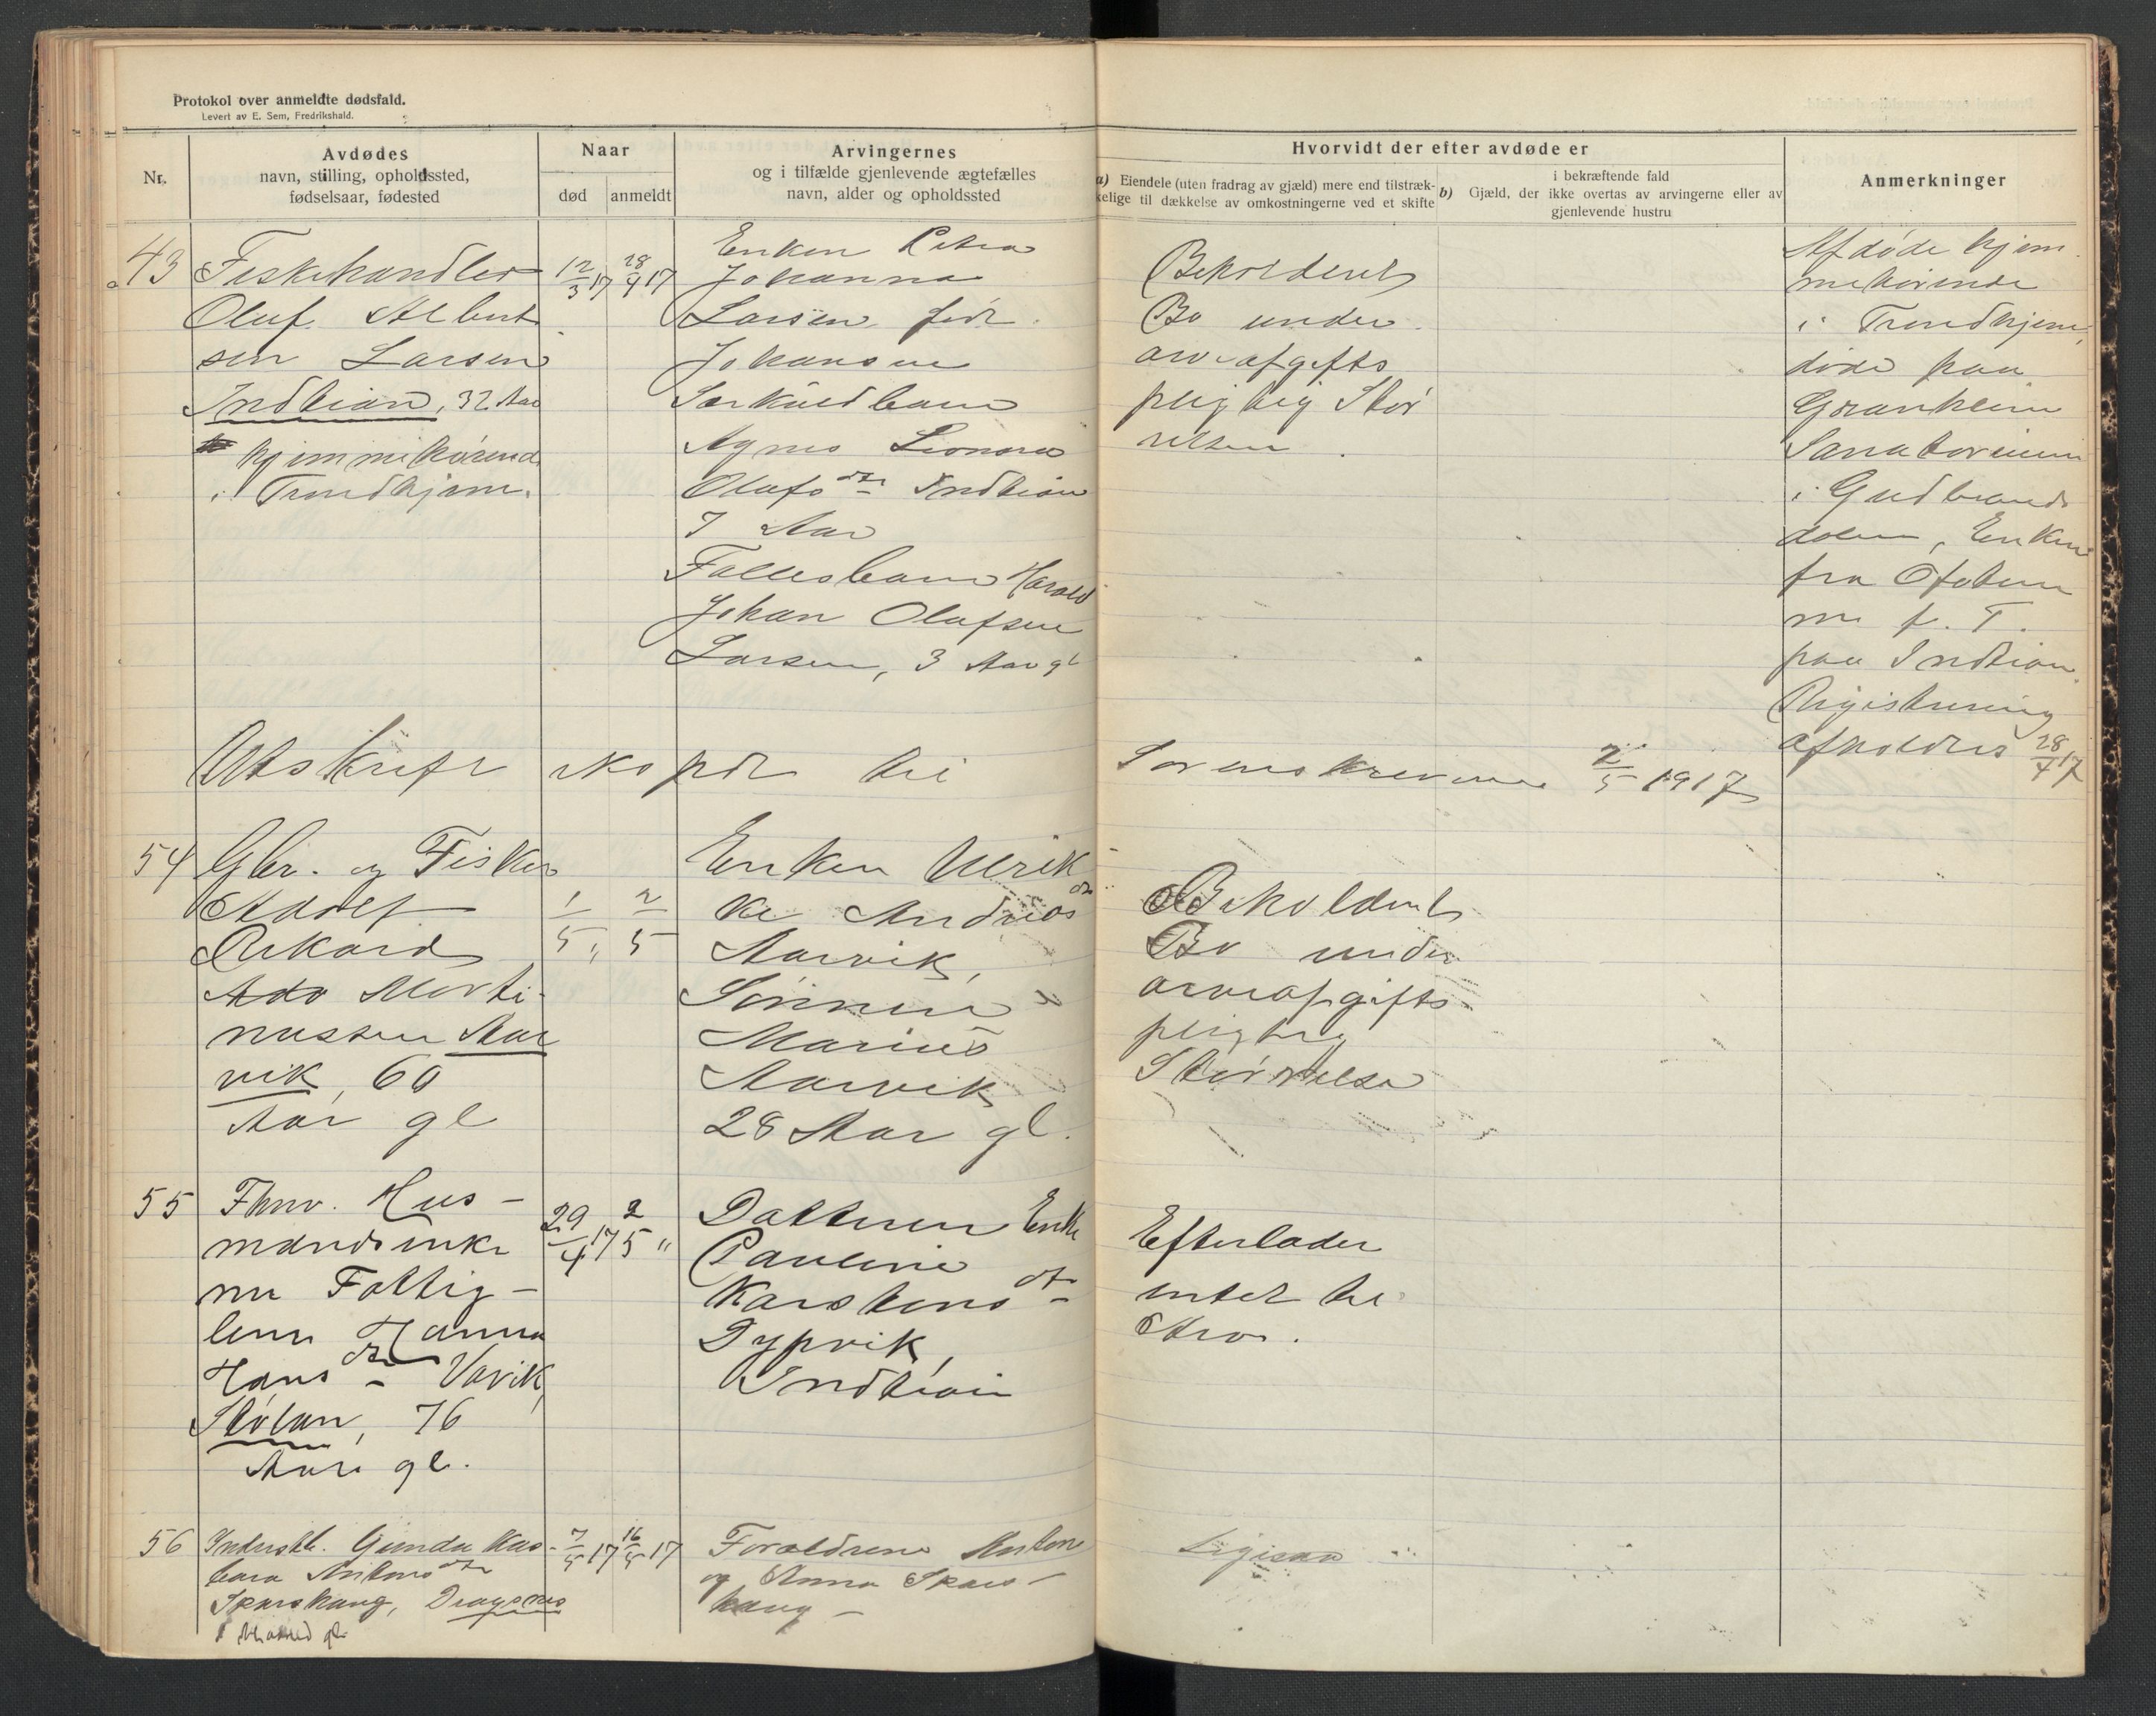 Protokol over anmeldte dødsfald.
Levert av E. Sem, Fredrikshald.
Nr.
Avdødes
navn, stilling, opholdssted,
fødselsaar, fødested
Naar
død
anmeldt
Arvingernes
og i tilfælde gjenlevende ægtefælles
navn, alder og opholdssted
Hvorvidt der efter avdøde er
a) Eiendele (uten fradrag av gjæld) mere end tilstræk-
kelige til dækkelse av omkostningerne ved et skifte
i bekræftende fald
b) Gjæld, der ikke overtas av arvingerne eller av
gjenlevende hustru
Anmerkninger
43
Fiskehandler
Oluf Albert
sen Larsen
Indtian, 32 Aar
hjemmehørend
i Trondhjem.
12/3 17
28/4 17
Enken Petra
Johanna
Larsen født
Johansen
Særkuldbarn
Agnes Leonora
Olufsdtr Indtian
7 Aar
Fællesbarn Harald
Johan Olafsen
Larsen, 3 Aar gl
Beholdent
Bo under
arveafgifts
pligtig Stør
relsen.
Afdøde hjem
mehørende
i Trondhjem,
døde paa
Granheim
Sanatorium
i Gudbrands
dalen, Enken
fra Ofoten
nu p. T.
paa Indtian.
Registrering
afholdes 28/4 17
Utskrift eksped til Sorenskriveren 2/5 1917
54
Gbr. og Fisker
Adolf
Rikard
Marti-
nussen Aar
vik, 60
Aar gl
1/5
2/5
Enken Ulrik
ke Andreasdtr
Aarvik,
Sønnen
Marius
Aarvik
28 Aar gl.
Beholdent
Bo under
arveafgifts
pligtig
Størrelse
55
Fhnv. Hus-
mandsenke
nu Fattig-
lem Hanna
Hansdtr Vavik,
Stølan, 76
Aar gl.
29/4 17
2/5 "
Datteren Enke
Pauline
Karstensdtr
Dypvik,
Indtian
Efterlader
intet til
Arv.
56
Gunda Kas-
para Antonsdtr
Skarshaug, Dragsnes
Maaned gl.
7/5 17
16/5 17
Forældrene Anton
og Anna Skars-
haug
Ligesaa